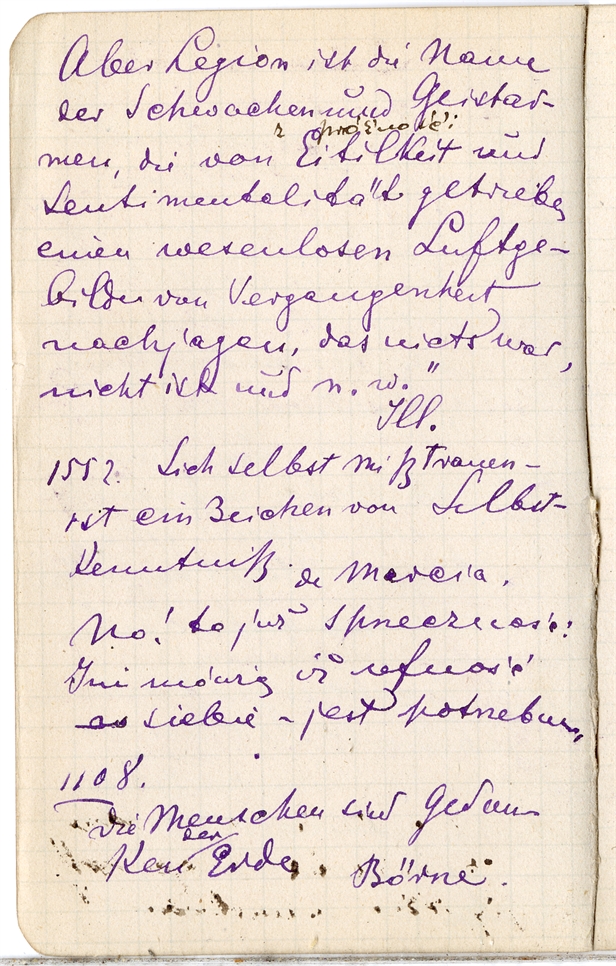 Aber Legion ist die Name
der Schwachen und Geistar-
z próżności
men, die von Eitilkeit und
Sentimentalität getrieben
einen wesenlosen Luftge-
bilde von Vergangenheit
nachjagen, das nicts war,
nicht ist und n. w."
Ill.
1552. Sich selbst mißtrauen -
ist ein Zeichen von Selbst-
Kenntniß. de Marcia.
No! to już sprzeczność!
Inni mówią iż ufność
siebie - jest potrzebna,
1108.
die Menschen sind Gedan-
der
Ken Erde. Börne.